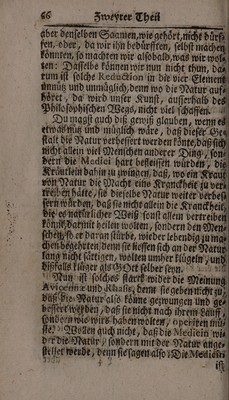 66 Zweyter Theil
aber denselben Saamen, wie gehört, nicht dürf-
fen, oder, da wir ihn bedürfften, selbst machen
könnten, so machten wir alsobald, was wir wol-
len: Dasselbe können wir nun nicht thun, da-
rum ist solche Reduction in die vier Element
unnütz und unmüglich, denn wo die Natur auf-
höret, da wird unser Kunst, ausserhalb des
Philosophischen Wegs, nicht viel schaffen.
Du magst auch diß gewiß glauben, wenn es
etwas nutz und müglich wäre, daß dieser Ge-
stalt die Natur verbessert werden könte, daß sich
nicht allein viel Menschen anderer Ding, son-
dern die Medici hart befleissen würden, die
Kräutlein dahin zu zwingen, daß, wo ein Kraut
von Natur die Macht eine Kranckheit zu ver-
treiben hätte, sie dieselbe Natur weiter verbes-
sern würden, daß sie nicht allein die Kranckheit,
die es natürlicher Weiß sonst allein vertreiben
könnt, darmit heilen wolten, sondern den Men-
schen, so er daran stürbe, wieder lebendig zu ma-
chen begehrten denn sie liessen sich an der Natur
lang nicht sättigen, wolten umher klügeln, und
dißfalls klüger als GOtt selber seyn.
Nun ist solches starck wider die Meinung
Avicennæ und Rhasis, denn sie geben nicht zu,
daß die Natur also könne gezwungen und ge-
bessert werden, daß sie nicht nach ihrem Lauff,
sondern wie wirs haben wolten, operiren mü-
ste: Wollen auch nicht, daß die Medicin wi-
der die Natur, sondern mit der Natur ange-
stellet werde, denn sie sagen also: Die Medicin
ist